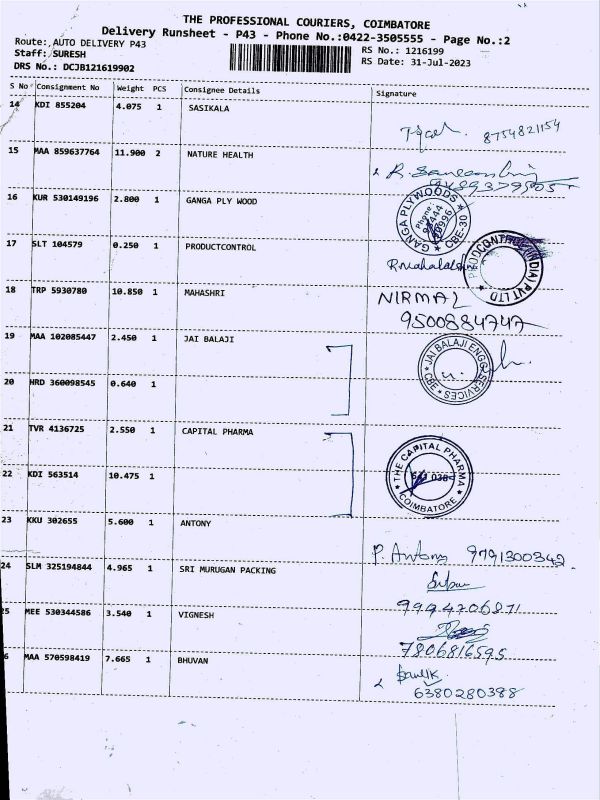 THE PROFESSIONAL COURIERS, COIMBATORE
Delivery Runsheet - P43 - Phone No.:0422-3505555 - Page No.:2
Route: AUTO DELIVERY P43
Staff: SURESH
DRS No.: DCJB121619902
RS No.: 1216199
RS Date: 31-Jul-2023
S No Consignment No Weight PCS Consignee Details Signature
14 KDI 855204 4.075 1 SASIKALA
8754821154
15 MAA 859637764 11.900 2 NATURE HEALTH
16 KUR 530149196 2.800 1 GANGA PLY WOOD
GANGA PLYWOODS
Phone:
CBE-30
17 SLT 104579 0.250 1 PRODUCTCONTROL
R.Mahalakshmi
PRODCONTROL (INDIA) PVT LTD
18 TRP 5930780 10.850 1 MAHASHRI
NIRMAL
9500884747
19 MAA 102085447 2.450 1 JAI BALAJI
JAI BALAJI ENGG SERVICES
CBE
20 HRD 360098545 0.640 1
21 TVR 4136725 2.550 1 CAPITAL PHARMA
THE CAPITAL PHARMA
COIMBATORE
22 KDI 563514 10.475 1
23 KKU 302655 5.600 1 ANTONY
P. Antony 9791300342
24 SLM 325194844 4.965 1 SRI MURUGAN PACKING
9994706871
25 MEE 530344586 3.540 1 VIGNESH
7806816595
6 MAA 570598419 7.665 1 BHUVAN
6380280388